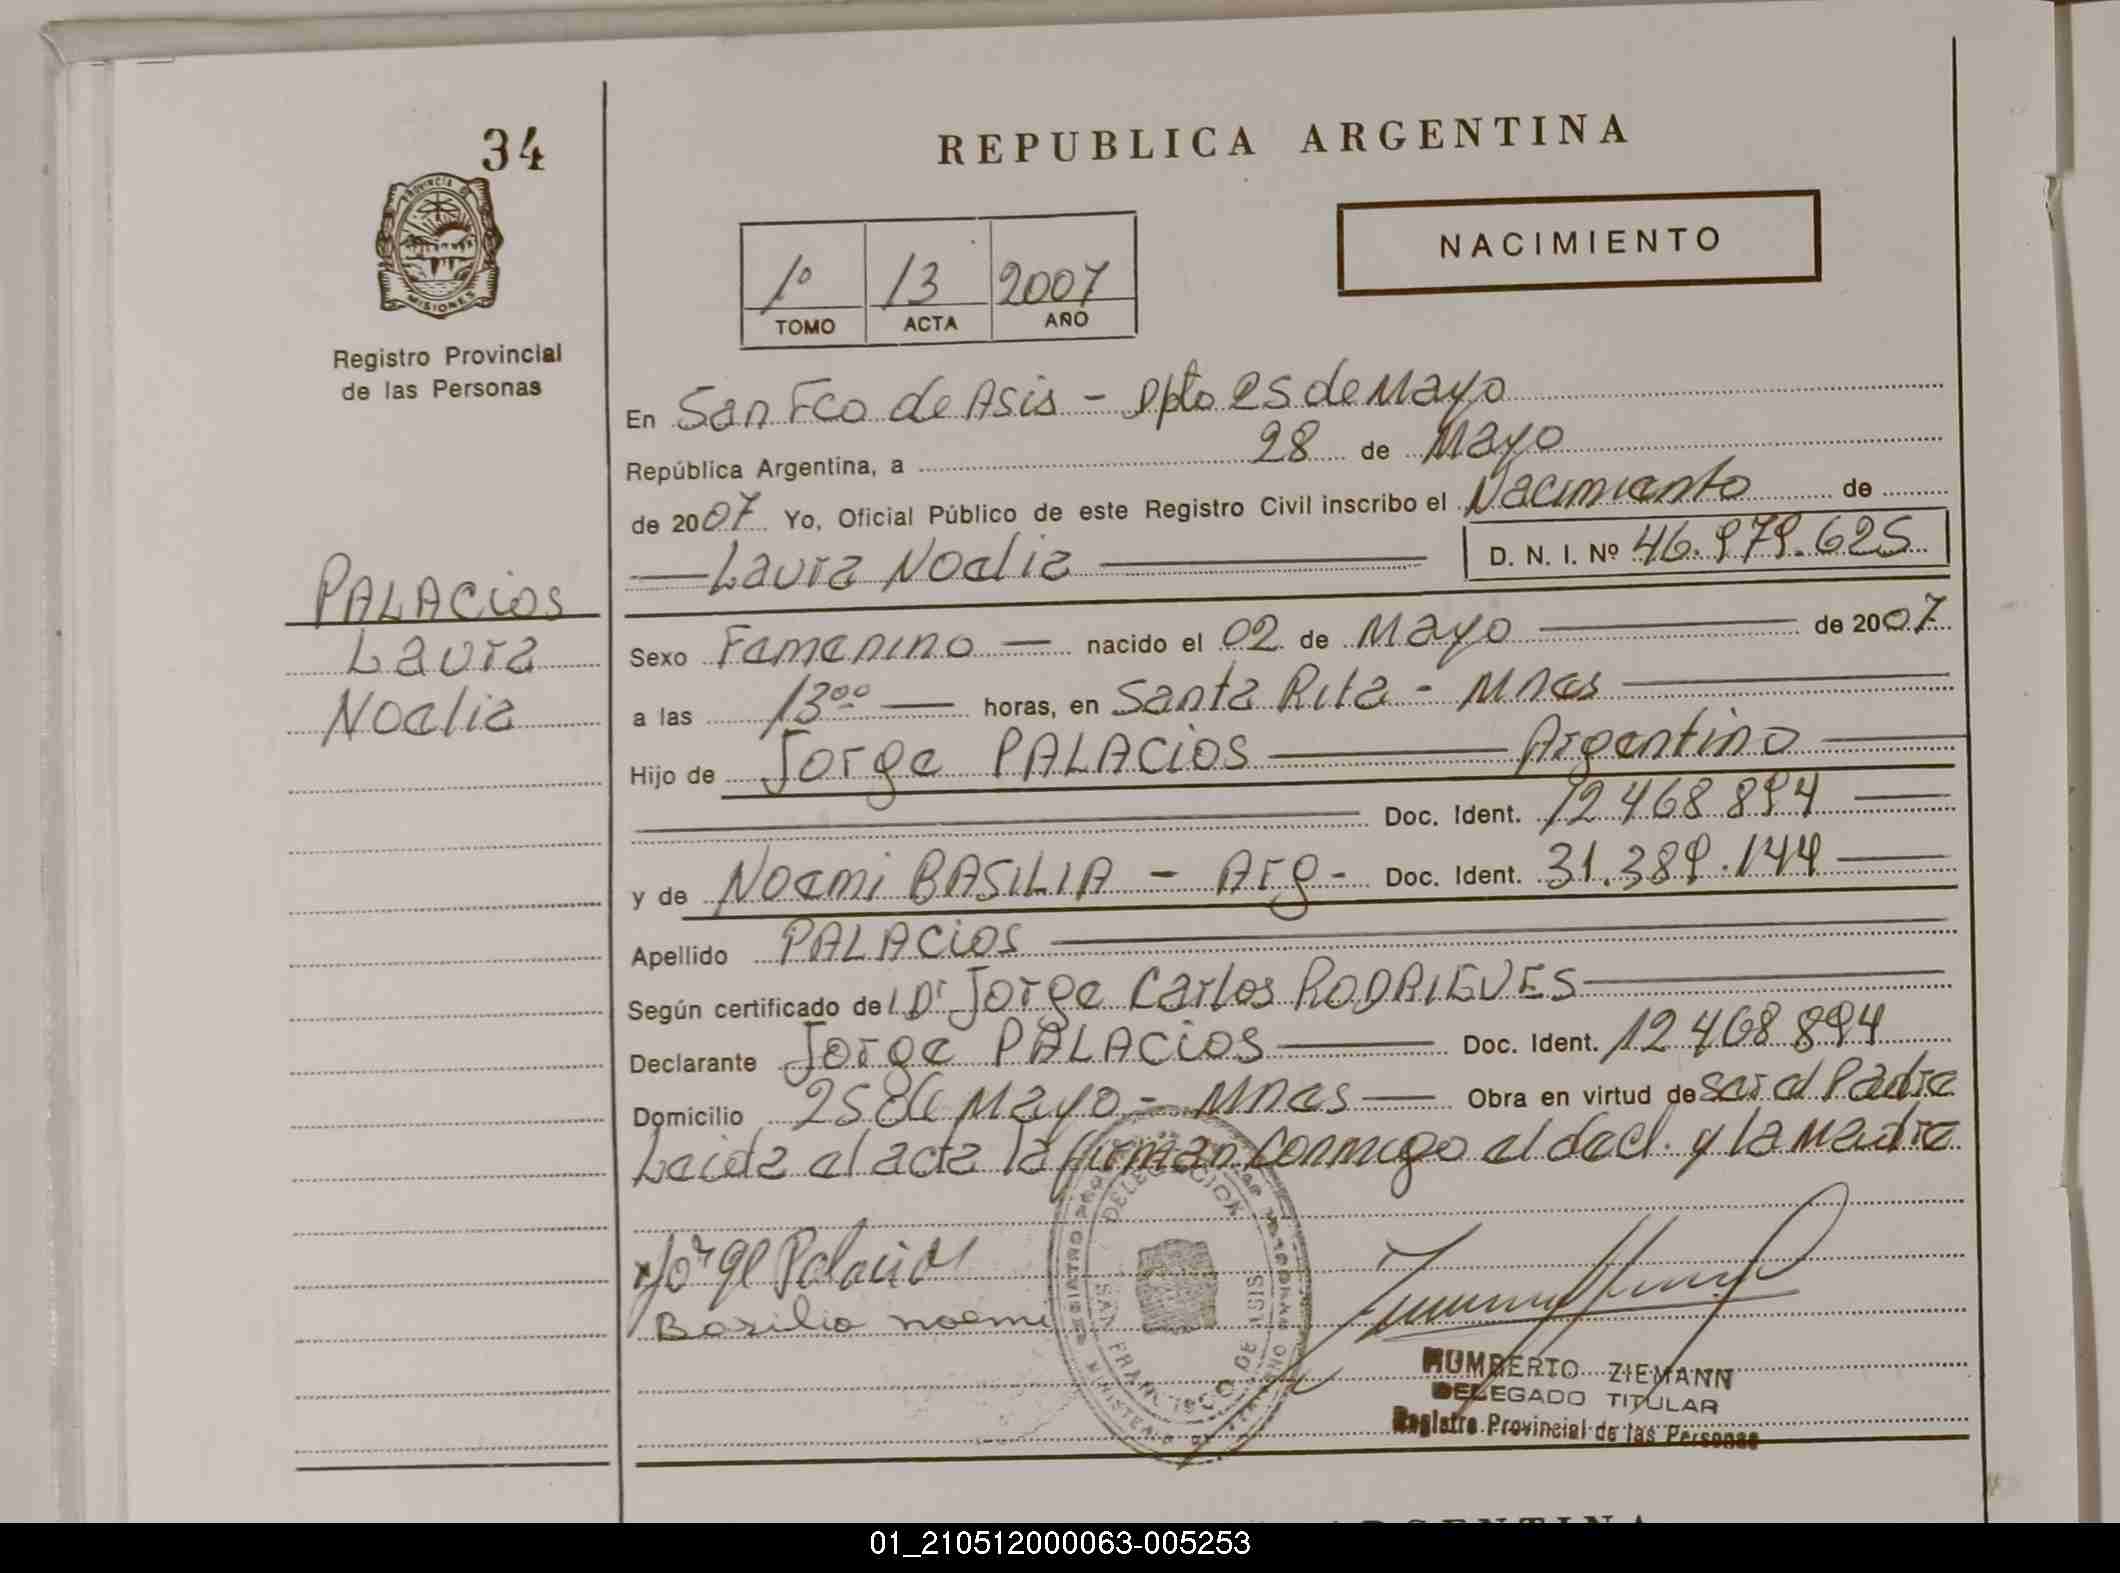 34
REPUBLICA ARGENTINA
PROVINCIA DE
MISIONES
NACIMIENTO
1º 13 2007
TOMO ACTA AÑO
Registro Provincial
de las Personas
En San Fco de Asis - Dpto 25 de Mayo
República Argentina, a 28 de Mayo
de 2007 Yo, Oficial Público de este Registro Civil inscribo el Nacimiento de
Laura Noelia D. N. I. Nº 46.979.625
PALACios
Laura
Noelia
Sexo Femenino nacido el 02 de Mayo de 2007
a las 13⁰⁰ horas, en Santa Rita - Mnes
Hijo de Jorge PALACios Argentino
Doc. Ident. 12.468.894
y de Noemi BASILIA - Arg - Doc. Ident. 31.389.144
Apellido PALACios
Según certificado del Dr Jorge Carlos RODRIGUES
Declarante Jorge PALACios Doc. Ident. 12.468.894
Domicilio 25 de Mayo - Mnes Obra en virtud de ser el Padre
Leida el acta la firman conmigo el decl. y la Madre
Jorge Palacios
Basilia noemi
DELEGACION
SAN FRANCISCO DE ASIS
HUMBERTO ZIEMANN
DELEGADO TITULAR
Registro Provincial de las Personas
ARGENTINA
01_210512000063-005253